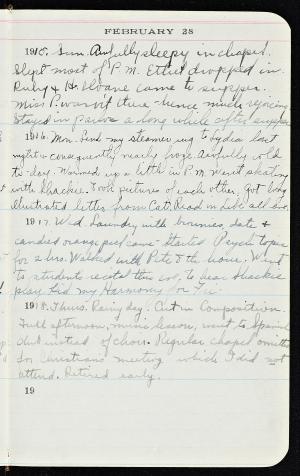 FEBRUARY 28
1915. Sun. Awfully sleepy in chapel.
Slept most of P.M. Ethel dropped in.
Ruby & H. Sloane came to supper.
Miss P. wasn't there - hence much rejoicing.
Stayed in parlor a long while after supper.
1916. Mon. Lent my steamer rug to Lydia last
night & consequently nearly froze. Awfully cold
to-day. Warmed up a little in P.M. Went skating
with Shackie. Took pictures of each other. Got long
illustrated letter from Cat. Read in Libe all eve.
1917. Wed. Laundry with brownies, date &
candied orange peel came. Started Psych topic
for 2 hrs. Walked with Pete & the
to students recital this eve. to hear Shackie
play. Did my Harmony for Fri.
1918. Thurs. Rainy day. Cut in Composition.
Full afternoon, music lesson, went to Spanish
club instead of choir. Regular chapel omitted
for Christians meeting which I did not
attend. Retired early.
19